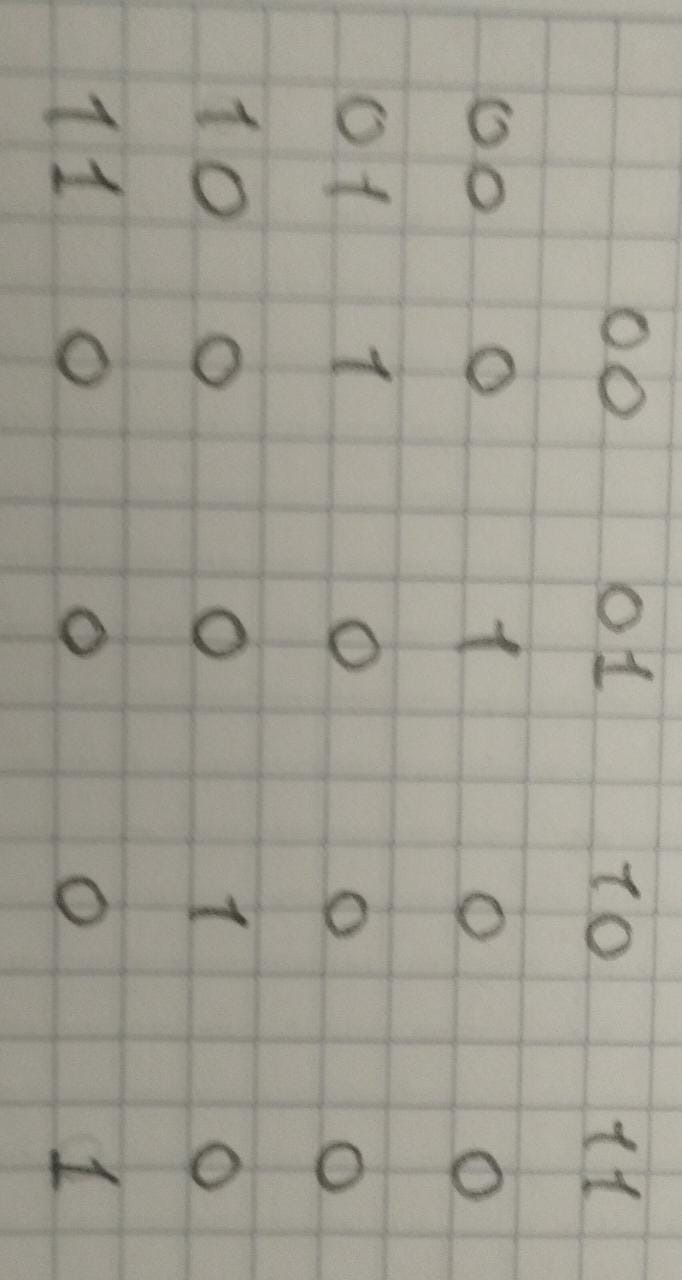 00 01 10 11
00 0 1 0 0
01 1 0 0 0
10 0 0 1 0
11 0 0 0 1